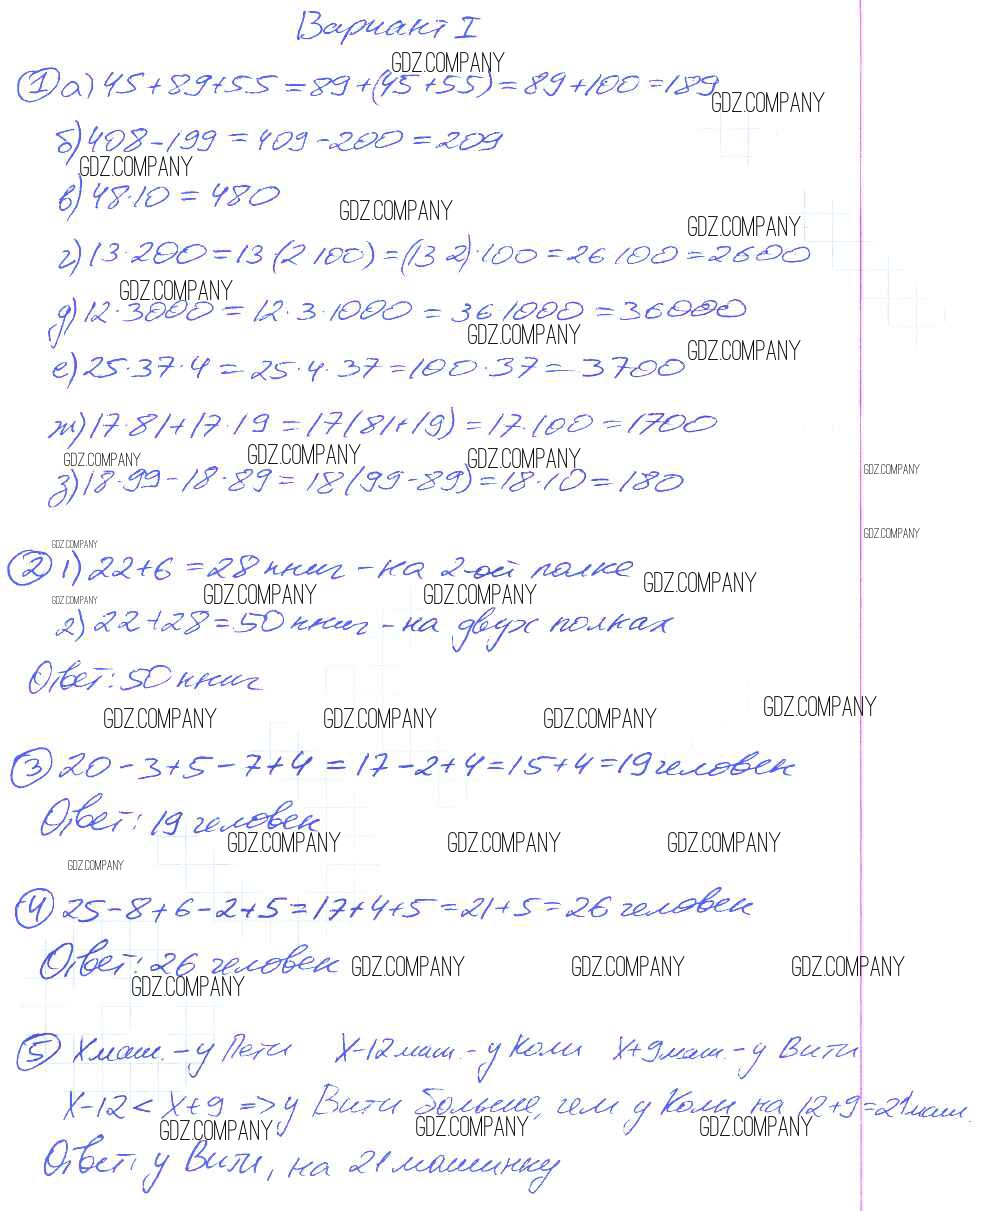 Вариант I
GDZ.COMPANY
① а) 45+89+55 = 89+(45+55) = 89+100 = 189
GDZ.COMPANY
б) 408-199 = 409-200 = 209
GDZ.COMPANY
в) 48·10 = 480
GDZ.COMPANY
GDZ.COMPANY
г) 13·200 = 13(2 100) = (13 2)·100 = 26 100 = 2600
GDZ.COMPANY
д) 12·3000 = 12·3·1000 = 36·1000 = 36000
GDZ.COMPANY
GDZ.COMPANY
е) 25·37·4 = 25·4·37 = 100·37 = 3700
ж) 17·81+17·19 = 17(81+19) = 17·100 = 1700
GDZ.COMPANY GDZ.COMPANY GDZ.COMPANY
GDZ.COMPANY
з) 18·99-18·89 = 18(99-89) = 18·10 = 180
GDZ.COMPANY
GDZ.COMPANY
② 1) 22+6 = 28 книг - на 2-ой полке
GDZ.COMPANY GDZ.COMPANY GDZ.COMPANY
GDZ.COMPANY
2) 22+28 = 50 книг - на двух полках
Ответ: 50 книг
GDZ.COMPANY GDZ.COMPANY GDZ.COMPANY GDZ.COMPANY
③ 20-3+5-7+4 = 17-2+4 = 15+4 = 19 человек
Ответ: 19 человек
GDZ.COMPANY GDZ.COMPANY GDZ.COMPANY
GDZ.COMPANY
④ 25-8+6-2+5 = 17+4+5 = 21+5 = 26 человек
Ответ: 26 человек
GDZ.COMPANY GDZ.COMPANY GDZ.COMPANY
GDZ.COMPANY
⑤ X маш. - у Пети X-12 маш. - у Коли X+9 маш. - у Вити
X-12 < X+9 => у Вити больше, чем у Коли на 12+9=21 маш.
GDZ.COMPANY GDZ.COMPANY GDZ.COMPANY
Ответ: у Вити, на 21 машинку